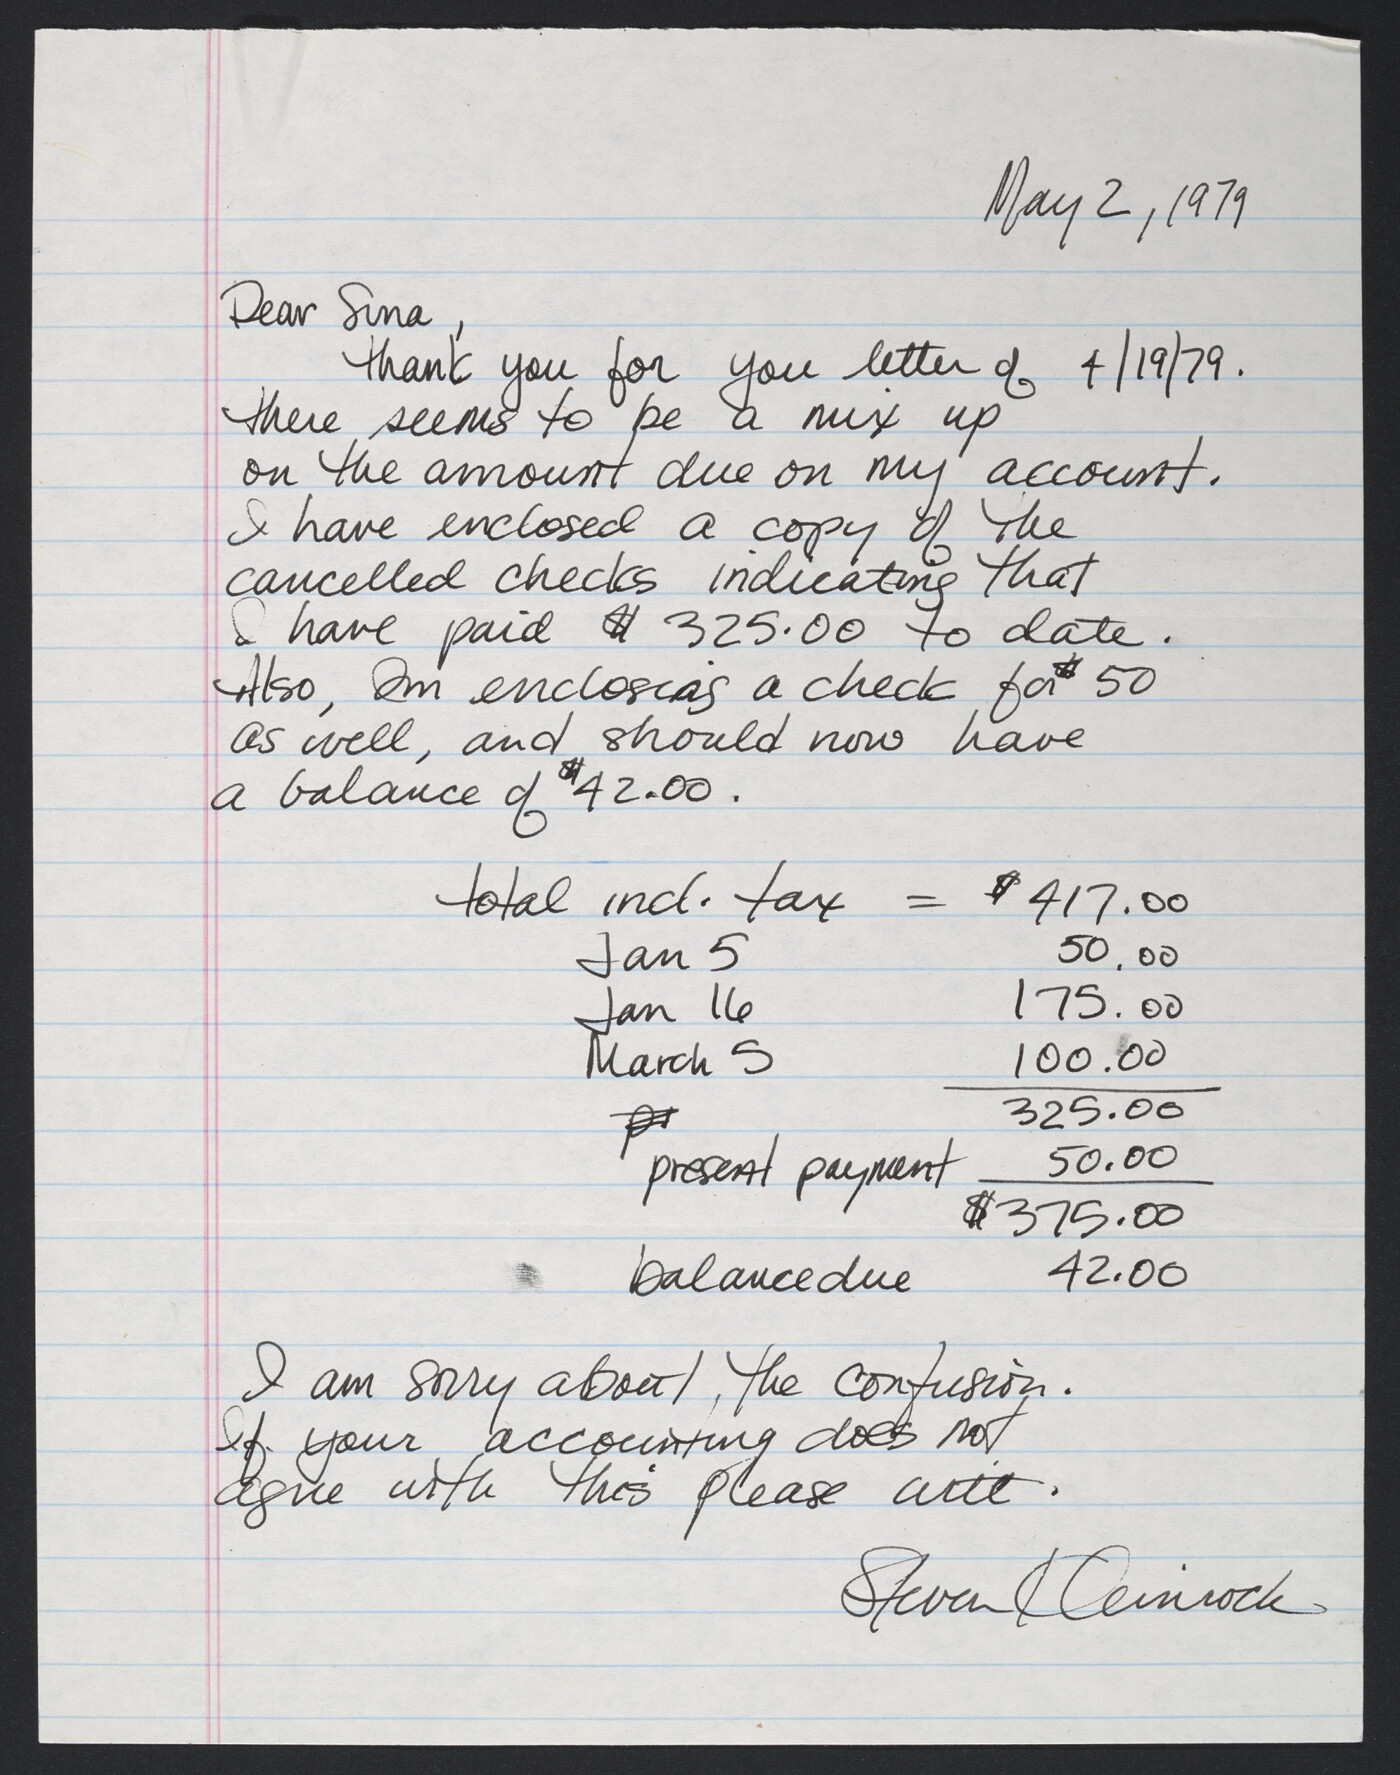 May 2, 1979
Dear Sina,
thank you for you letter of 4/19/79.
there seems to be a mix up
on the amount due on my account.
I have enclosed a copy of the
cancelled checks indicating that
I have paid $ 325.00 to date.
Also, Im enclosing a check for $50
as well, and should now have
a balance of $42.00.
total incl. tax = $417.00
Jan 5 50.00
Jan 16 175.00
March 5 100.00
325.00
present payment 50.00
$375.00
balance due 42.00
I am sorry about the confusion.
If your accounting does not
agree with this please write.
Steven Kleinrock